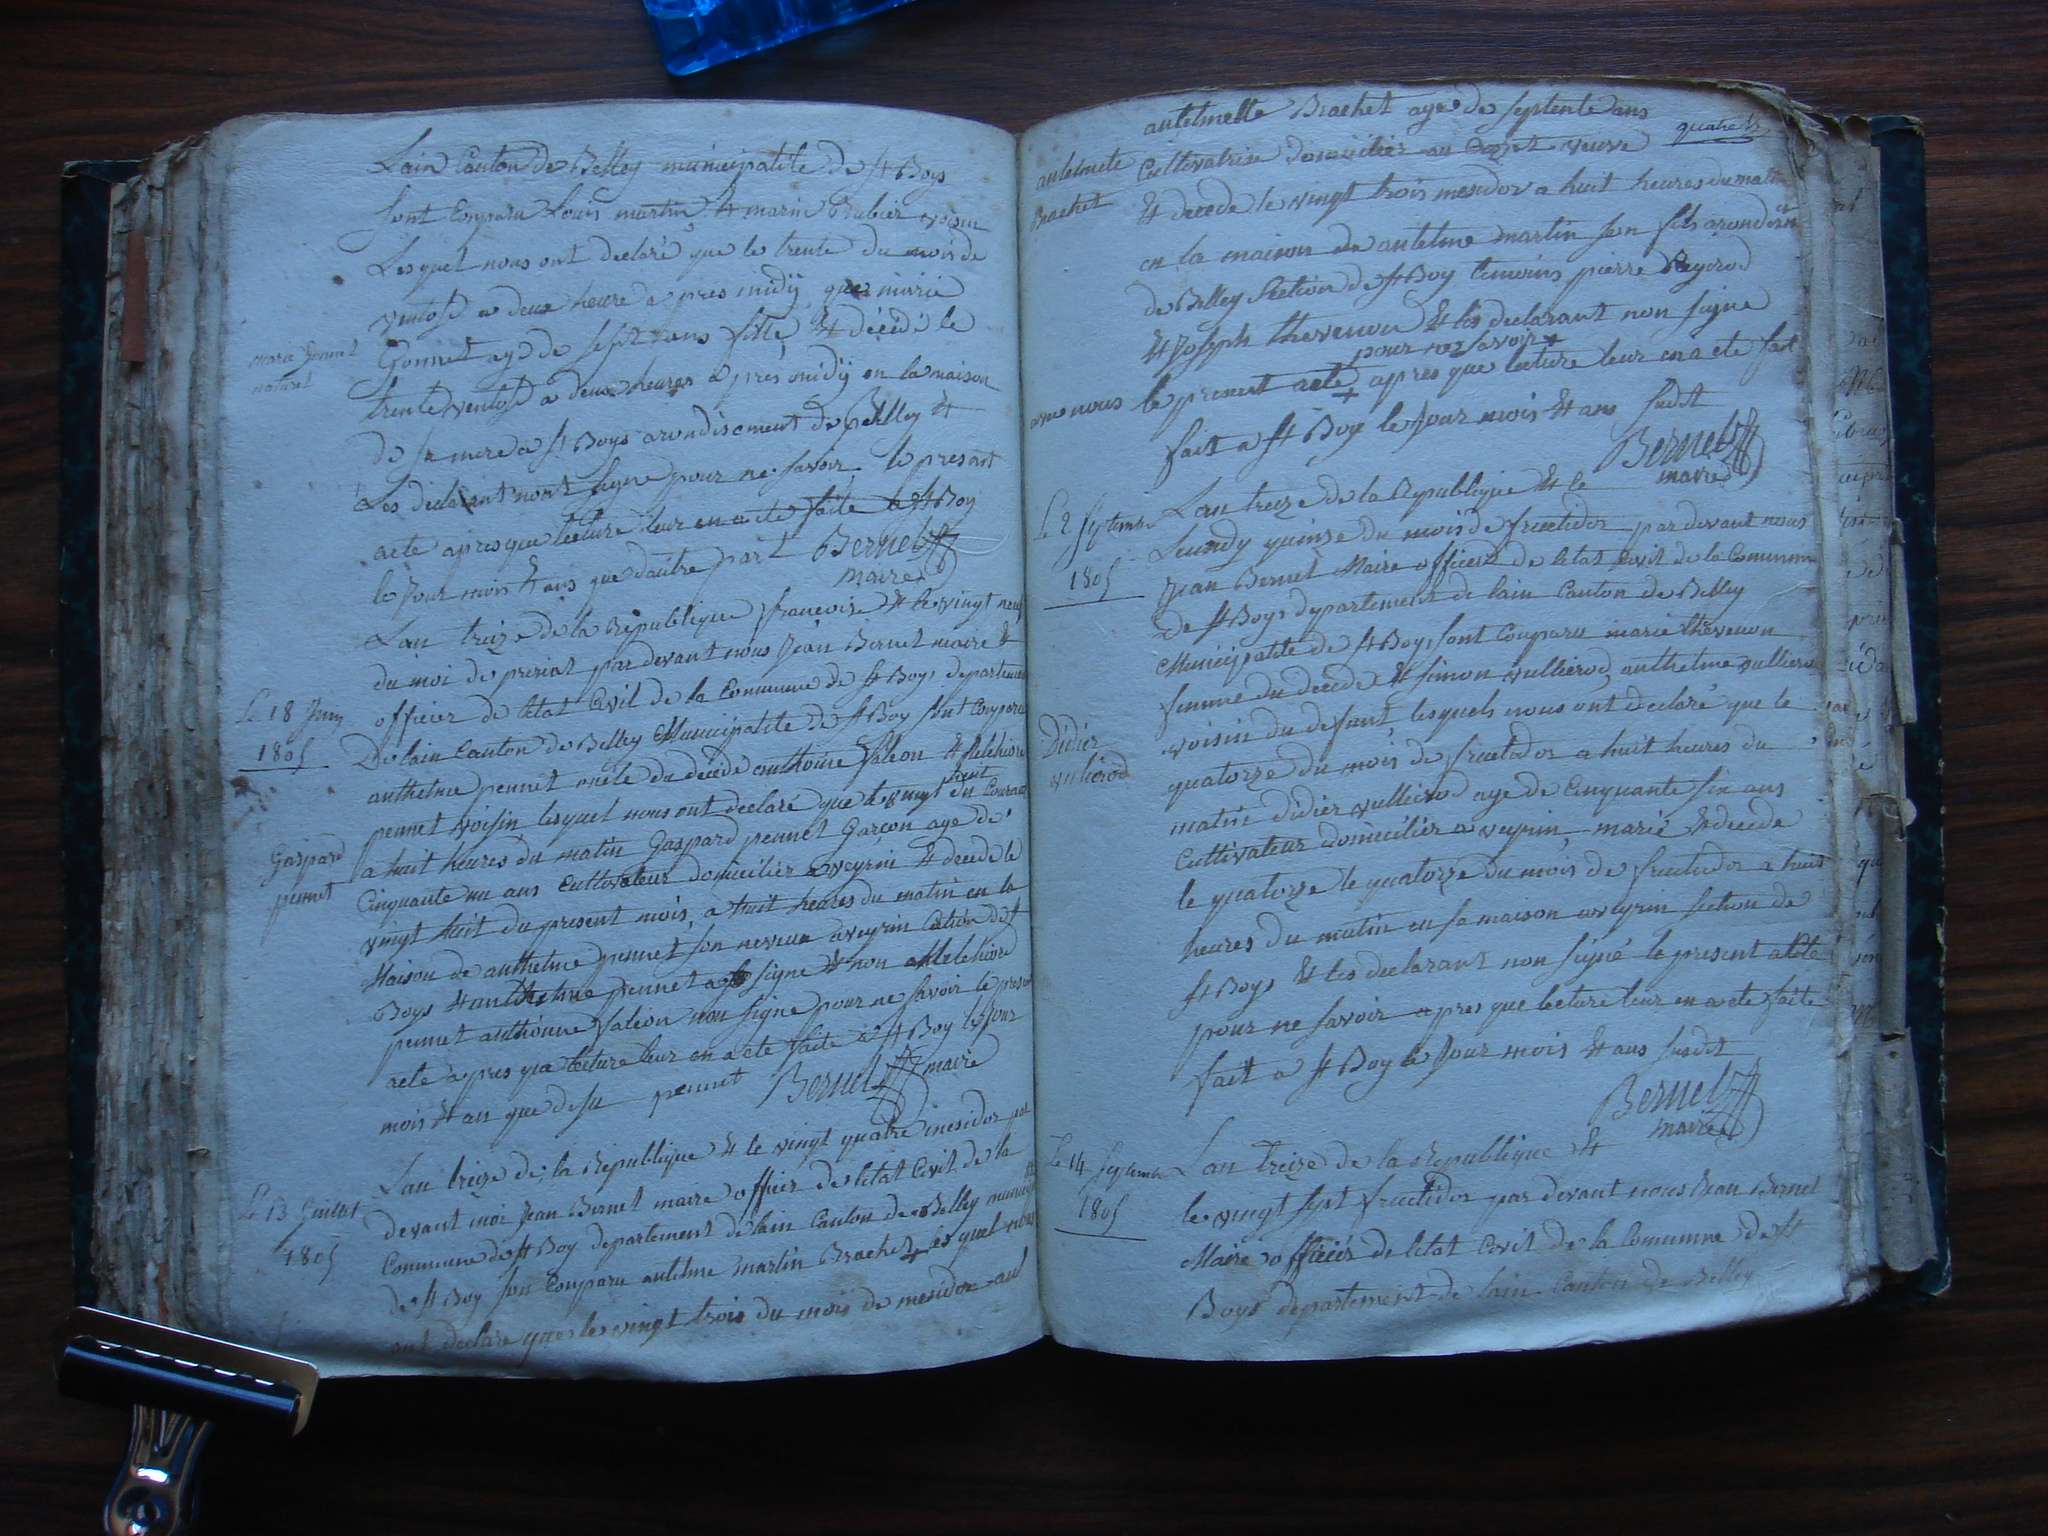 Lain Canton de Belley municipalite de St Boys
sont Comparu Louis martin & marin voisin
Lesquel nous ont declaré que le trente du mois de
ventose a deux heure apres midy que marie
marie Gonnet
naturel
Gonnet age de sept ans fille & décédé le
trente ventose a deux heures apres midy en la maison
de sa mere a St Boys arondisement de Belley &
Les declarant nont signe pour ne savoir le present
acte apres que lecture leur en a ete faite a St Boy
le Jour mois & ans que dautre part Bernet
maire
Lan treize de la Republique francoise & le vingt neuf
du moi de prerial par devant nous Jean Bernet maire &
Le 18 Juin
1805
officier de letat Civil de la Commune de St Boys departement
De lain Canton de Belley Municipalite de St Boy sont Comparu
anthelme pennet oncle du decede anthoine falion & Melchiore
pennet voisin lesquel nous ont declaré que le vingt huit du Courant
Gaspard
pennet
a huit heures du matin Gaspard pennet Garcon age de
Cinquante un ans Cultivateur domicilier a veyrin & decede le
vingt huit du present mois a huit heures du matin en la
Maison de anthelme pennet son neveux a veyrin Cection de St
Boys & anthelme pennet a signe & non Melchiore
pennet anthoinne falion non signe pour ne savoir le present
acte apres que lecture leur en a ete faite a St Boy le Jour
mois & an que desu pennet Bernet maire
Le 13 Juillet
1805
Lan treize de la Republique & le vingt quatre mesidor par
devant moi Jean Bernet maire officier de letat Civil de la
Commune de St Boy departement de lain Canton de Belley
de St Boy son Comparu antelme martin Brachet lesquel nous
ont declare que le vingt trois du mois de mesidor
antelmette Brachet age de septente ans
quatre
antelmete
Brachet
Cultivatrise domicilier au veuve
& decede le vingt trois mesidor a huit heures du matin
en la maison de antelme martin son fils arondism
de Belley Section de St Boy temoins pierre Reyrod
& Joseph thevenon & les declarant non signe
pour ne savoir +
avec nous le present acte + apres que lecture leur en a ete fait
fait a St Boy le Jour mois & ans susdit
Bernet
maire
Le 2 septembre
1805
Lan treize de la Republique & le
Lundy quinze du mois de fructidor par devant nous
Jean Bernet Maire officier de letat Civil de la Commune
de St Boys departement de lain Canton de Belley
Municipalite de St Boys sont Comparu marie thevenon
femme du decede & simon vullierod anthelme vullierod
Didier
vullierod
voisin du defunt lesquels nous ont declaré que le
quatorze du mois de fructidor a huit heures du
matin didier vullierod age de Cinquante six ans
Cultivateur domicilier a veyrin marié & decede
le quatorze le quatorze du mois de fructidor a huit
heures du matin en sa maison a veyrin section de
St Boys & les declarant non signé le present acte
pour ne savoir apres que lecture leur en a ete faite
fait a St Boy le Jour mois & ans susdit
Bernet
maire
Le 14 septembre
1805
Lan treize de la Republique &
le vingt sept fructidor par devant nous Jean Bernet
Maire officier de letat Civil de la Commune de St
Boys departement de lain Canton de Belley